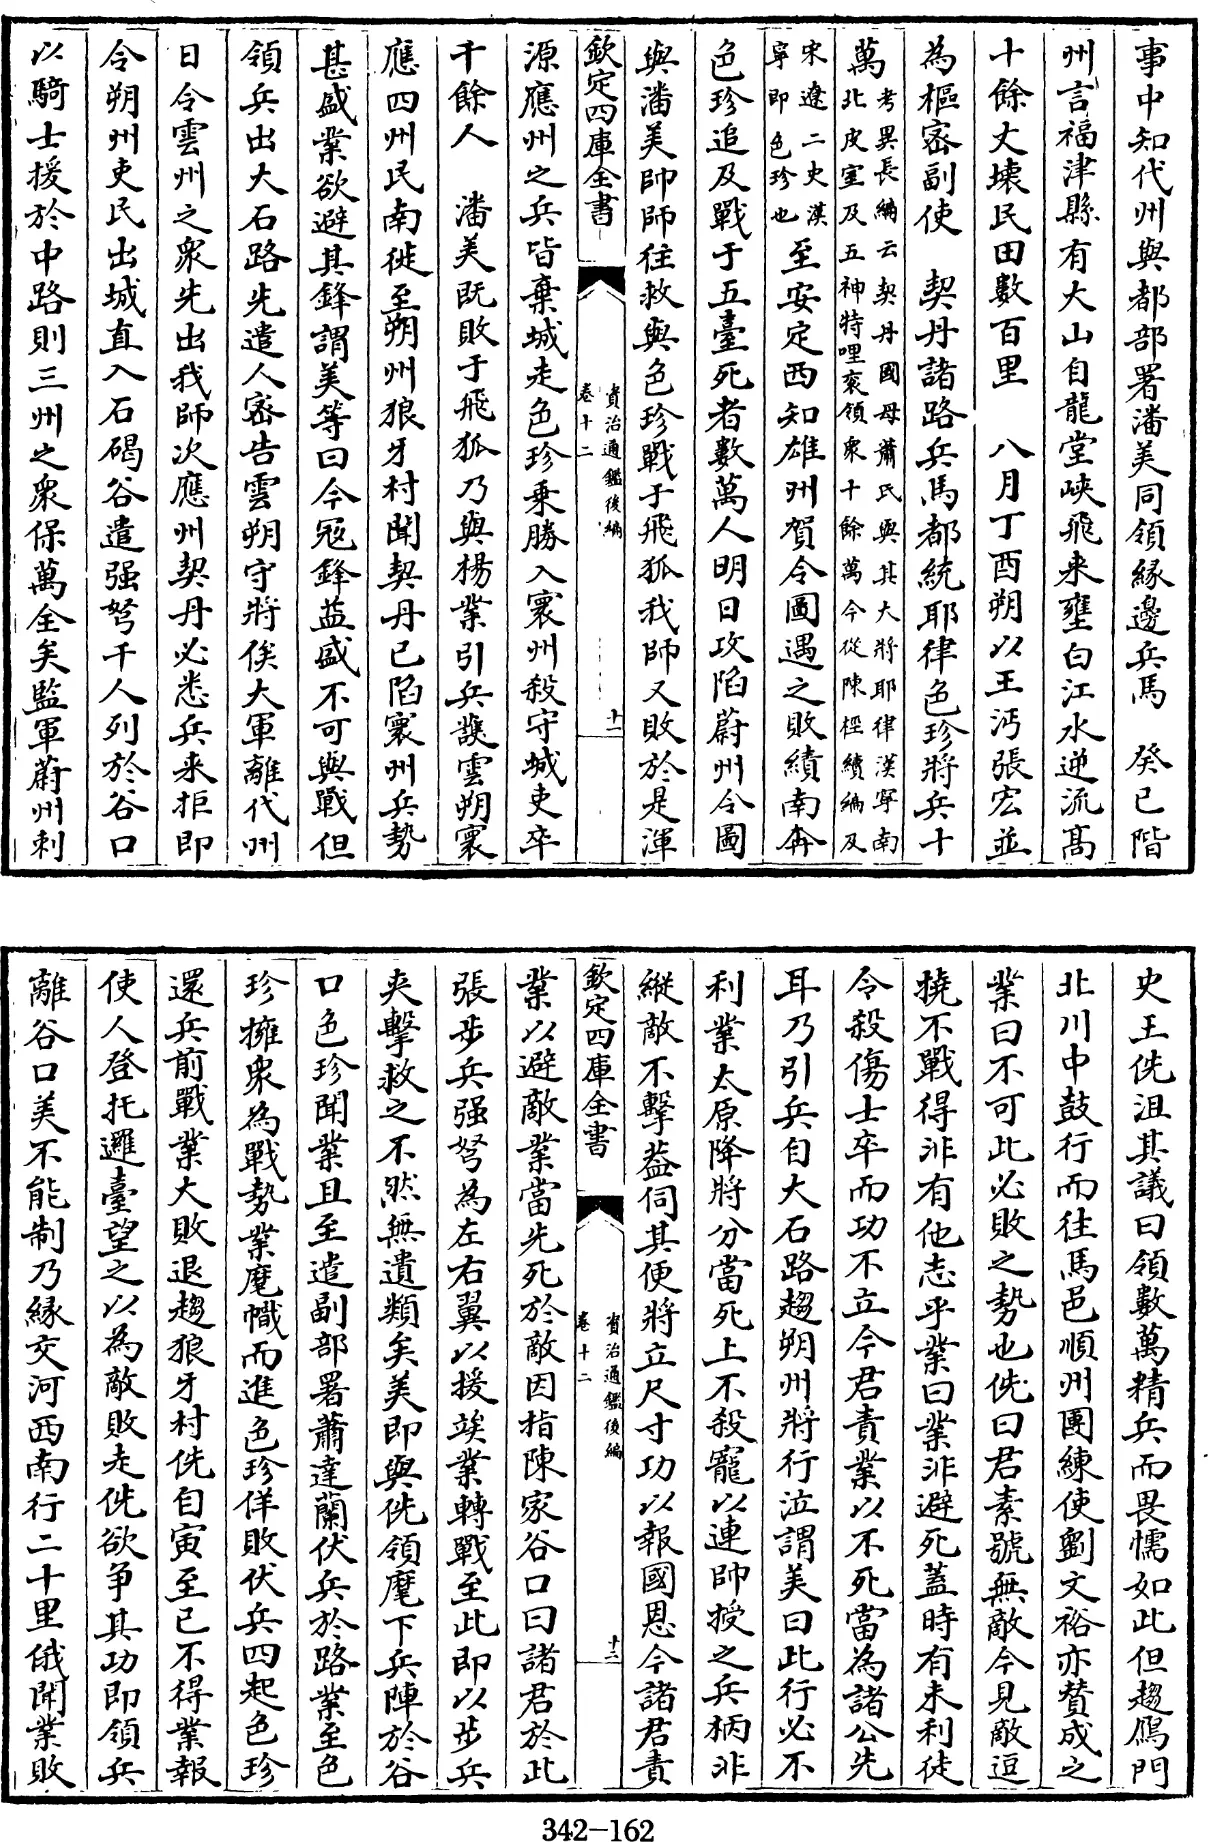 事中知代州與都部署潘美同領緣邊兵馬　癸巳階
州言福津縣有大山自龍堂峽飛來壅白江水逆流高
十餘丈壞民田數百里　八月丁酉朔以王沔張宏並
為樞密副使　契丹諸路兵馬都統耶律色珍將兵十
萬考異長編云契丹國母蕭氏與其大將耶律漢寧南
北皮室及五神特哩衮領衆十餘萬今從陳桱續編及
宋遼二史漢
寧即色珍也至安定西知雄州賀令圖遇之敗績南奔
色珍追及戰于五臺死者數萬人明日攻陷蔚州令圖
與潘美帥師往救與色珍戰于飛狐我師又敗於是渾
欽定四庫全書
資治通鑑後編
卷十二
十一
源應州之兵皆棄城走色珍乘勝入寰州殺守城吏卒
千餘人　潘美既敗于飛狐乃與楊業引兵護雲朔寰
應四州民南徙至朔州狼牙村聞契丹已陷寰州兵勢
甚盛業欲避其鋒謂美等曰今寇鋒益盛不可與戰但
領兵出大石路先遣人密告雲朔守將俟大軍離代州
日令雲州之衆先出我師次應州契丹必悉兵來拒即
令朔州吏民出城直入石碣谷遣强弩千人列於谷口
以騎士援於中路則三州之衆保萬全矣監軍蔚州刺
史王侁沮其議曰領數萬精兵而畏懦如此但趨鴈門
北川中鼓行而往馬邑順州團練使劉文裕亦贊成之
業曰不可此必敗之勢也侁曰君素號無敵今見敵逗
撓不戰得非有他志乎業曰業非避死蓋時有未利徒
令殺傷士卒而功不立今君責業以不死當為諸公先
耳乃引兵自大石路趨朔州將行泣謂美曰此行必不
利業太原降將分當死上不殺寵以連帥授之兵柄非
縱敵不擊葢伺其便將立尺寸功以報國恩今諸君責
欽定四庫全書
資治通鑑後編
卷十二
十二
業以避敵業當先死於敵因指陳家谷口曰諸君於此
張步兵强弩為左右翼以援竢業轉戰至此即以步兵
夾擊救之不然無遺類矣美即與侁領麾下兵陣於谷
口色珍聞業且至遣副部署蕭達蘭伏兵於路業至色
珍擁衆為戰勢業麾幟而進色珍佯敗伏兵四起色珍
還兵前戰業大敗退趨狼牙村侁自寅至已不得業報
使人登托邏臺望之以為敵敗走侁欲争其功即領兵
離谷口美不能制乃緣交河西南行二十里俄聞業敗
342-162